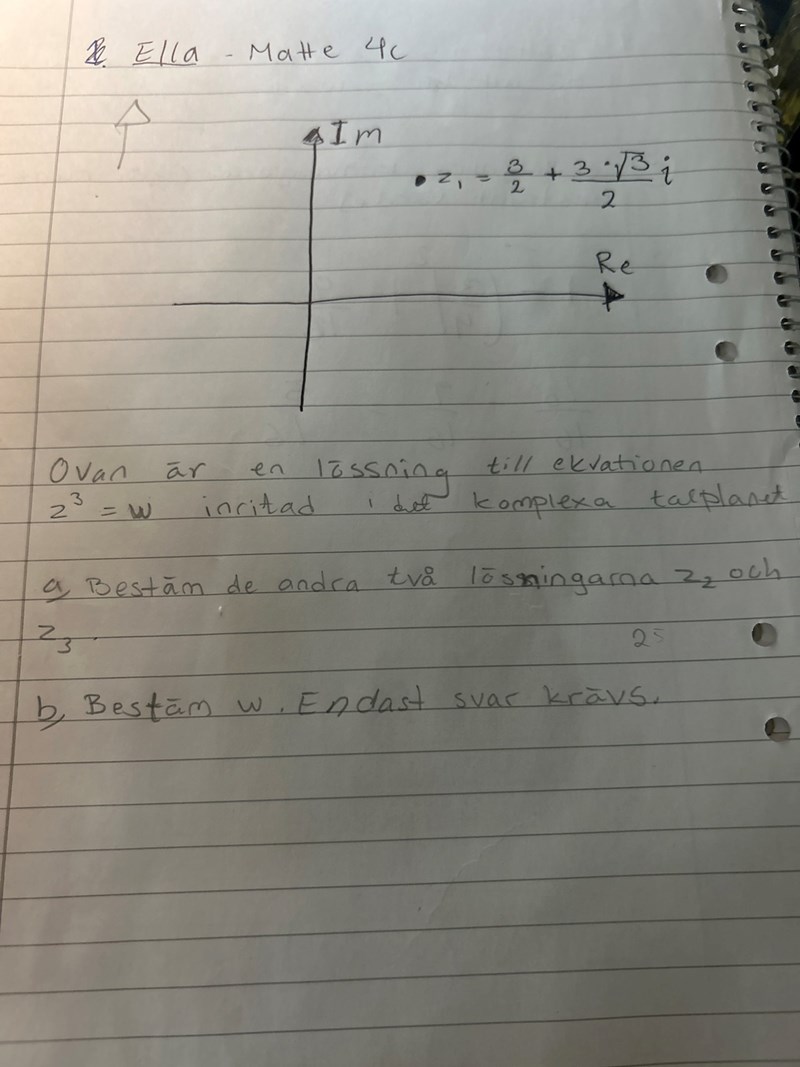 Ella - Matte 4c
Im
z₁ = 3/2 + 3·√3/2 i
Re
Ovan är en lössning till ekvationen
z³ = w inritad i det komplexa talplanet
a, Bestäm de andra två lösningarna z₂ och
z₃.
b, Bestäm w. Endast svar krävs.